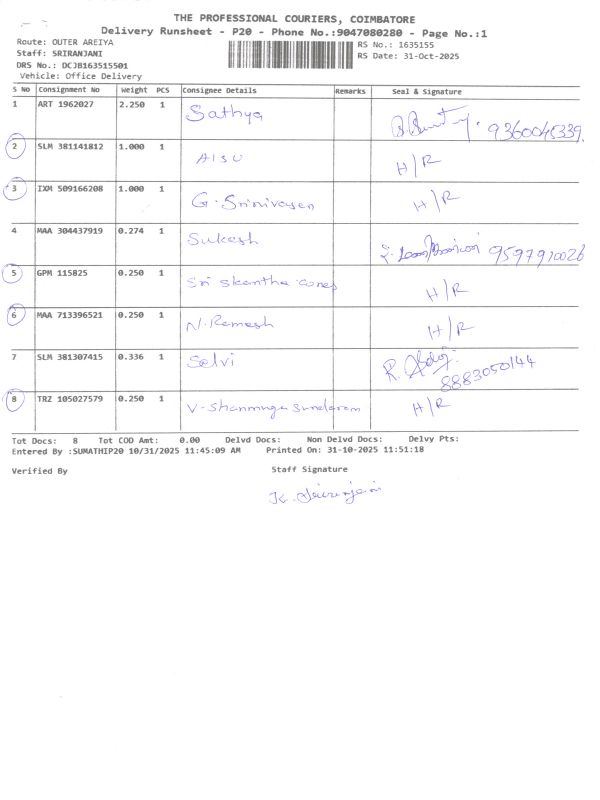 THE PROFESSIONAL COURIERS, COIMBATORE
Delivery Runsheet - P20 - Phone No.:9047080280 - Page No.:1
Route: OUTER AREIYA
RS No.: 1635155
Staff: SRIRANJANI
RS Date: 31-Oct-2025
DRS No.: DCJB163515501
Vehicle: Office Delivery
S No Consignment No Weight PCS Consignee Details Remarks Seal & Signature
1 ART 1962027 2.250 1 Sathya 9360045339.
2 SLM 381141812 1.000 1 AISU H/R
3 IXM 509166208 1.000 1 G. Srinivasen H/R
4 MAA 304437919 0.274 1 Sukesh 9597910026
5 GPM 115825 0.250 1 Sri Skantha cones H/R
6 MAA 713396521 0.250 1 N. Ramesh H/R
7 SLM 381307415 0.336 1 Selvi R. 8883050144
8 TRZ 105027579 0.250 1 V- Shanmuga Sundaram H/R
Tot Docs: 8 Tot COD Amt: 0.00 Delvd Docs: Non Delvd Docs: Delvy Pts:
Entered By :SUMATHIP20 10/31/2025 11:45:09 AM Printed On: 31-10-2025 11:51:18
Verified By Staff Signature